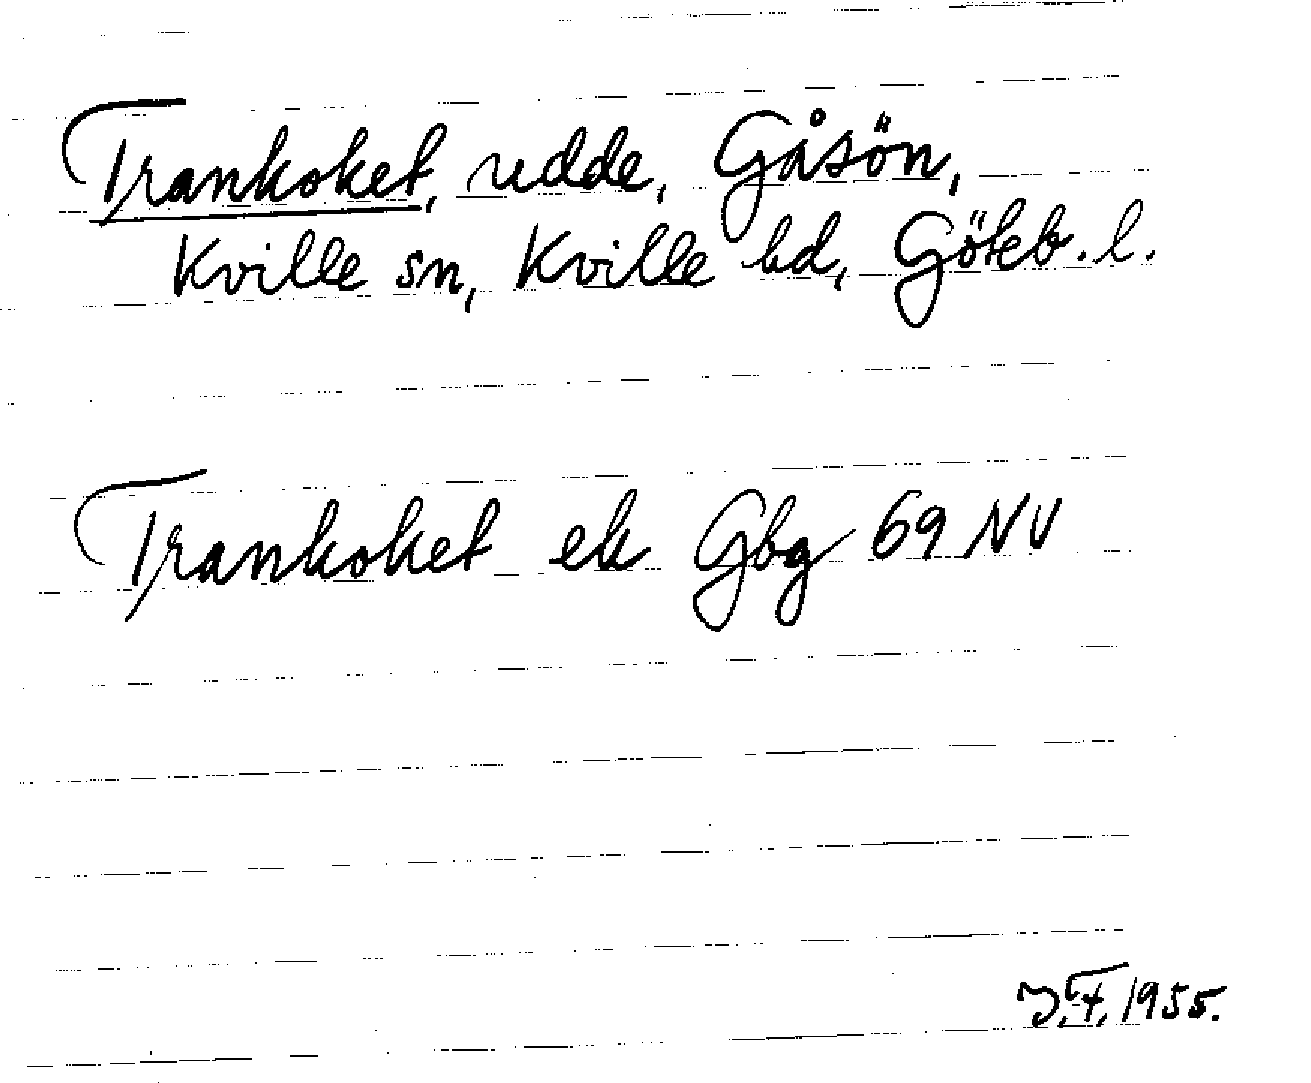 Trankoket, udde, Gåsön,
Kville sn, Kville hd, Göteb. l.
Trankoket ek Gbg 69 NV
1955.